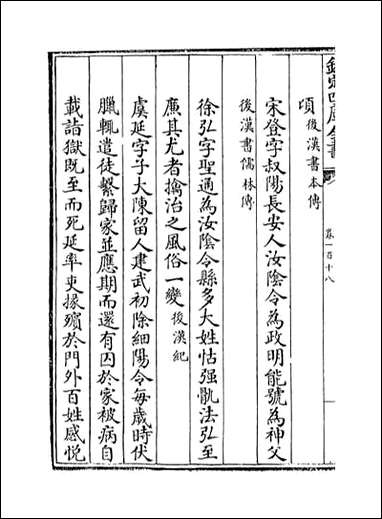 欽定四庫全書
卷一百十八
頃後漢書本傳
宋登字叔陽長安人汝陰令為政明能號為神父
後漢書儒林傳
徐弘字聖通為汝陰令縣多大姓怙强骫法弘至
廉其尤者擒治之風俗一變後漢紀
虞延字子大陳留人建武初除細陽令每歲時伏
臘輒遣徒繫歸家並應期而還有囚於家被病自
載詣獄既至而死延率吏掾殯於門外百姓感悅